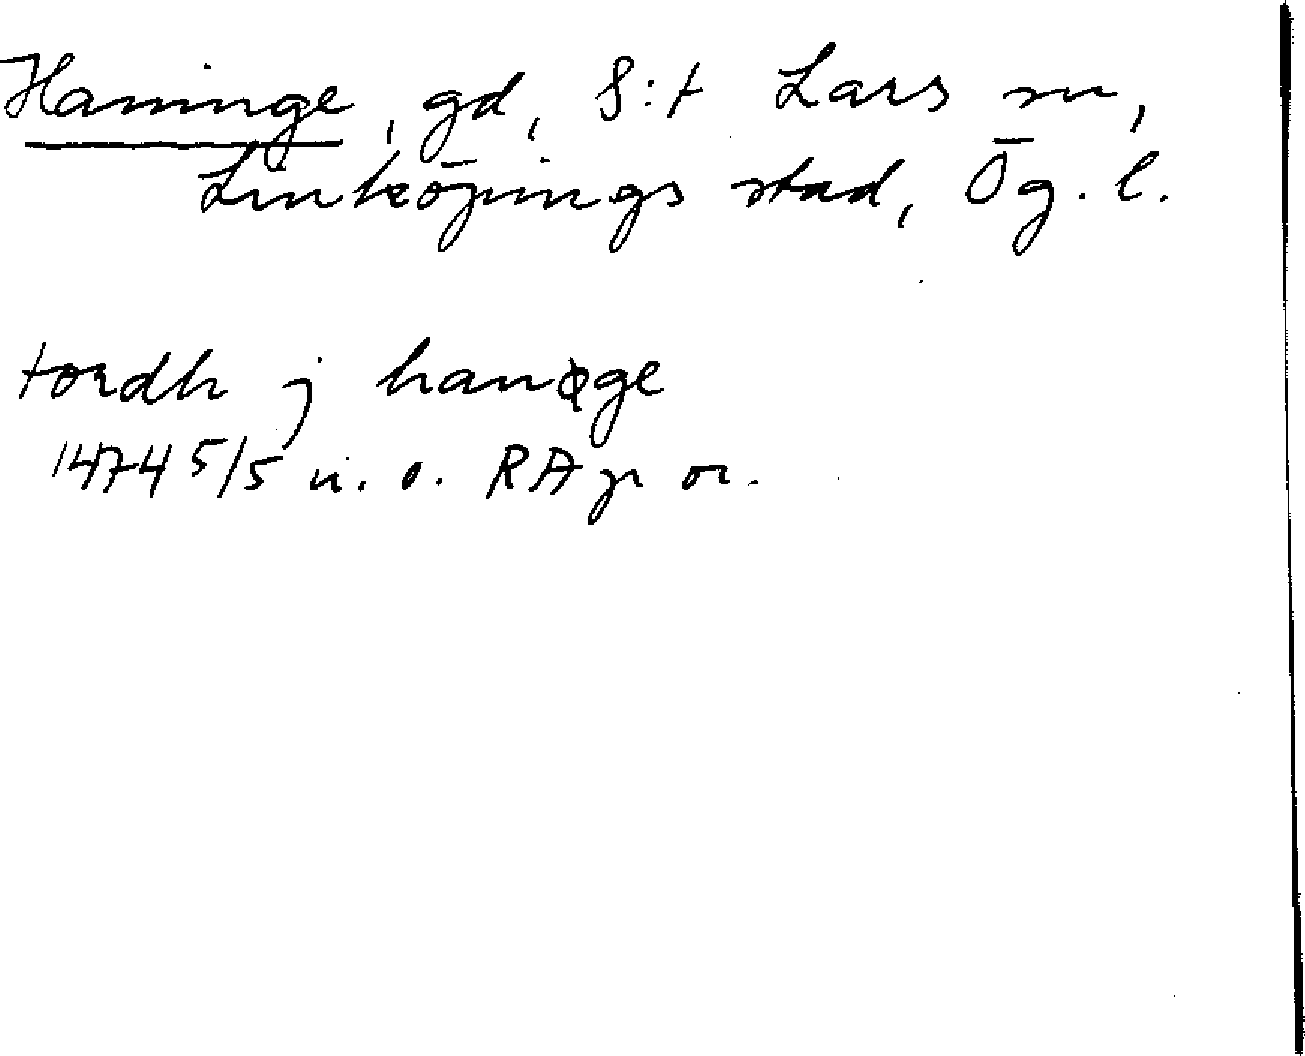 Haninge, gd, S:t Lars sn,
Linköpings stad, Ög. l.
tordh j hanøge
1474 5/5 u. o. RAp or.